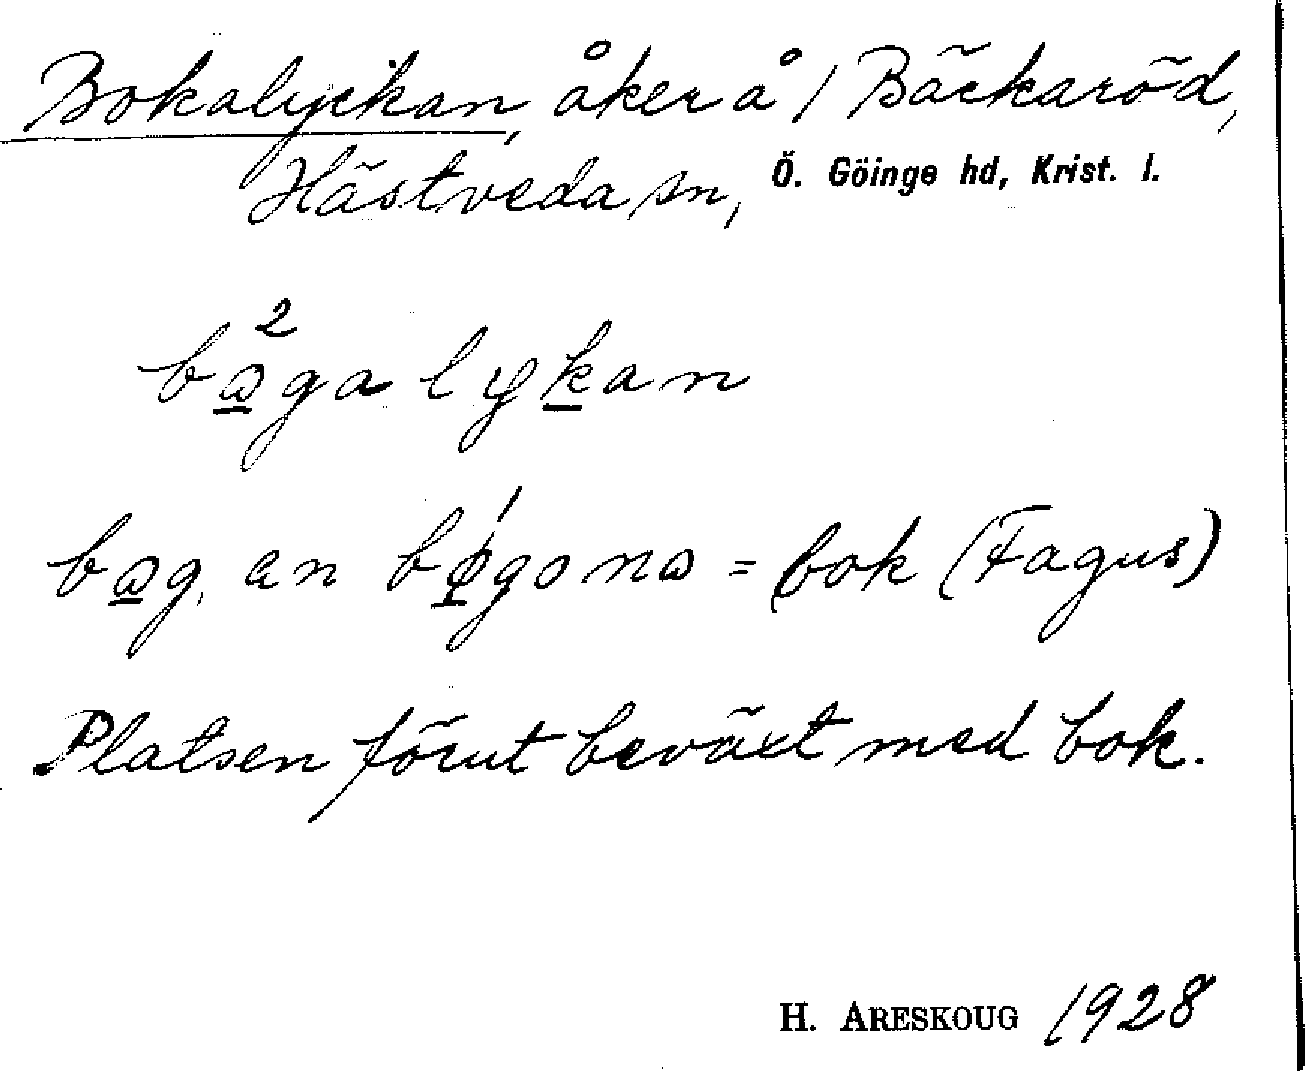 Bokalyckan, åker å 1 Bäckaröd,
Hästveda sn, Ö. Göinge hd, Krist. l.
2
bɷ̲galyk̲an
bɷ̲g, en bǿ̲gona = bok (Fagus)
Platsen förut beväxt med bok.
H. ARESKOUG 1928